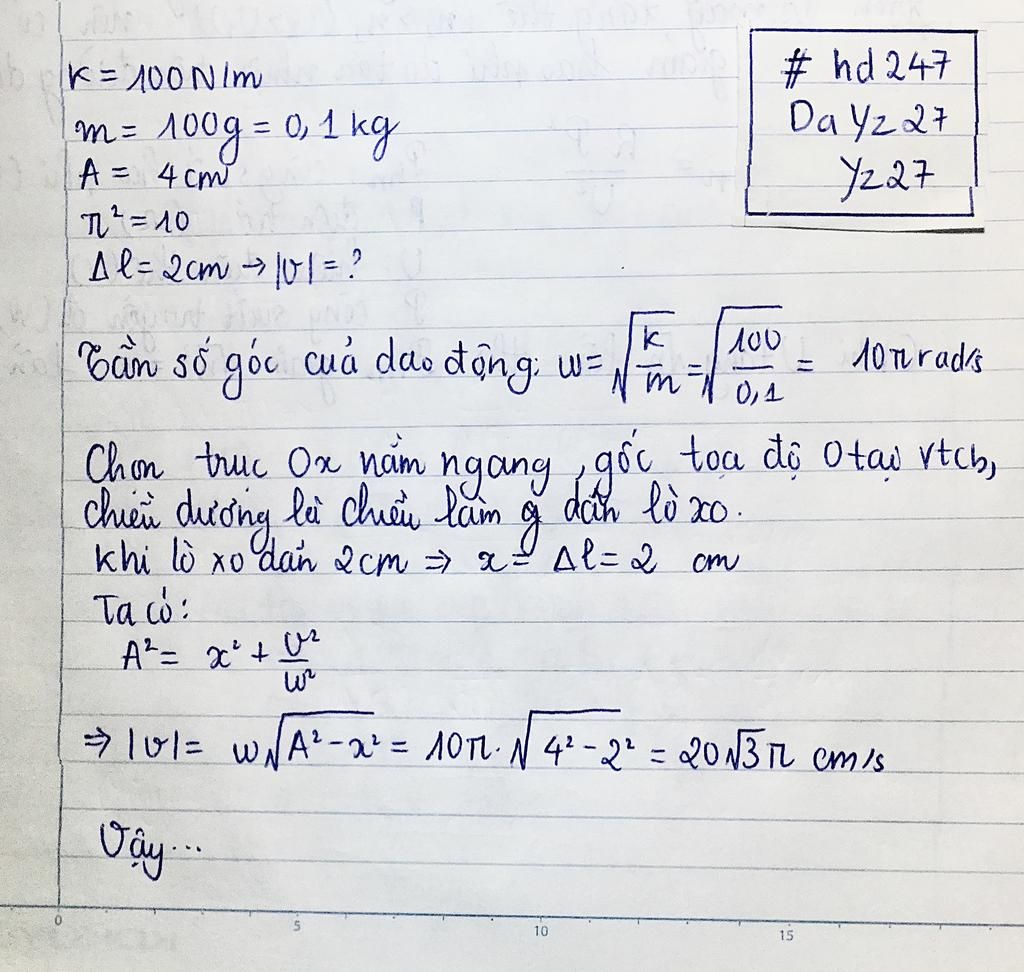 # hd 247
Da Yz 27
Yz 27
K = 100 N/m
m = 100g = 0,1 kg
A = 4cm
π² = 10
Δl = 2cm → |v| = ?
Tần số góc cuả dao động: w = √(k/m) = √(100/0,1) = 10π rad/s
Chọn trục Ox nằm ngang, gốc tọa độ O tại vtcb,
chiều dương là chiều làm g dãn lò xo.
Khi lò xo dãn 2cm ⇒ x = Δl = 2 cm
Ta có:
A² = x² + v²/w²
⇒ |v| = w√(A² - x²) = 10π. √(4² - 2²) = 20√3π cm/s
Vậy...
0 5 10 15